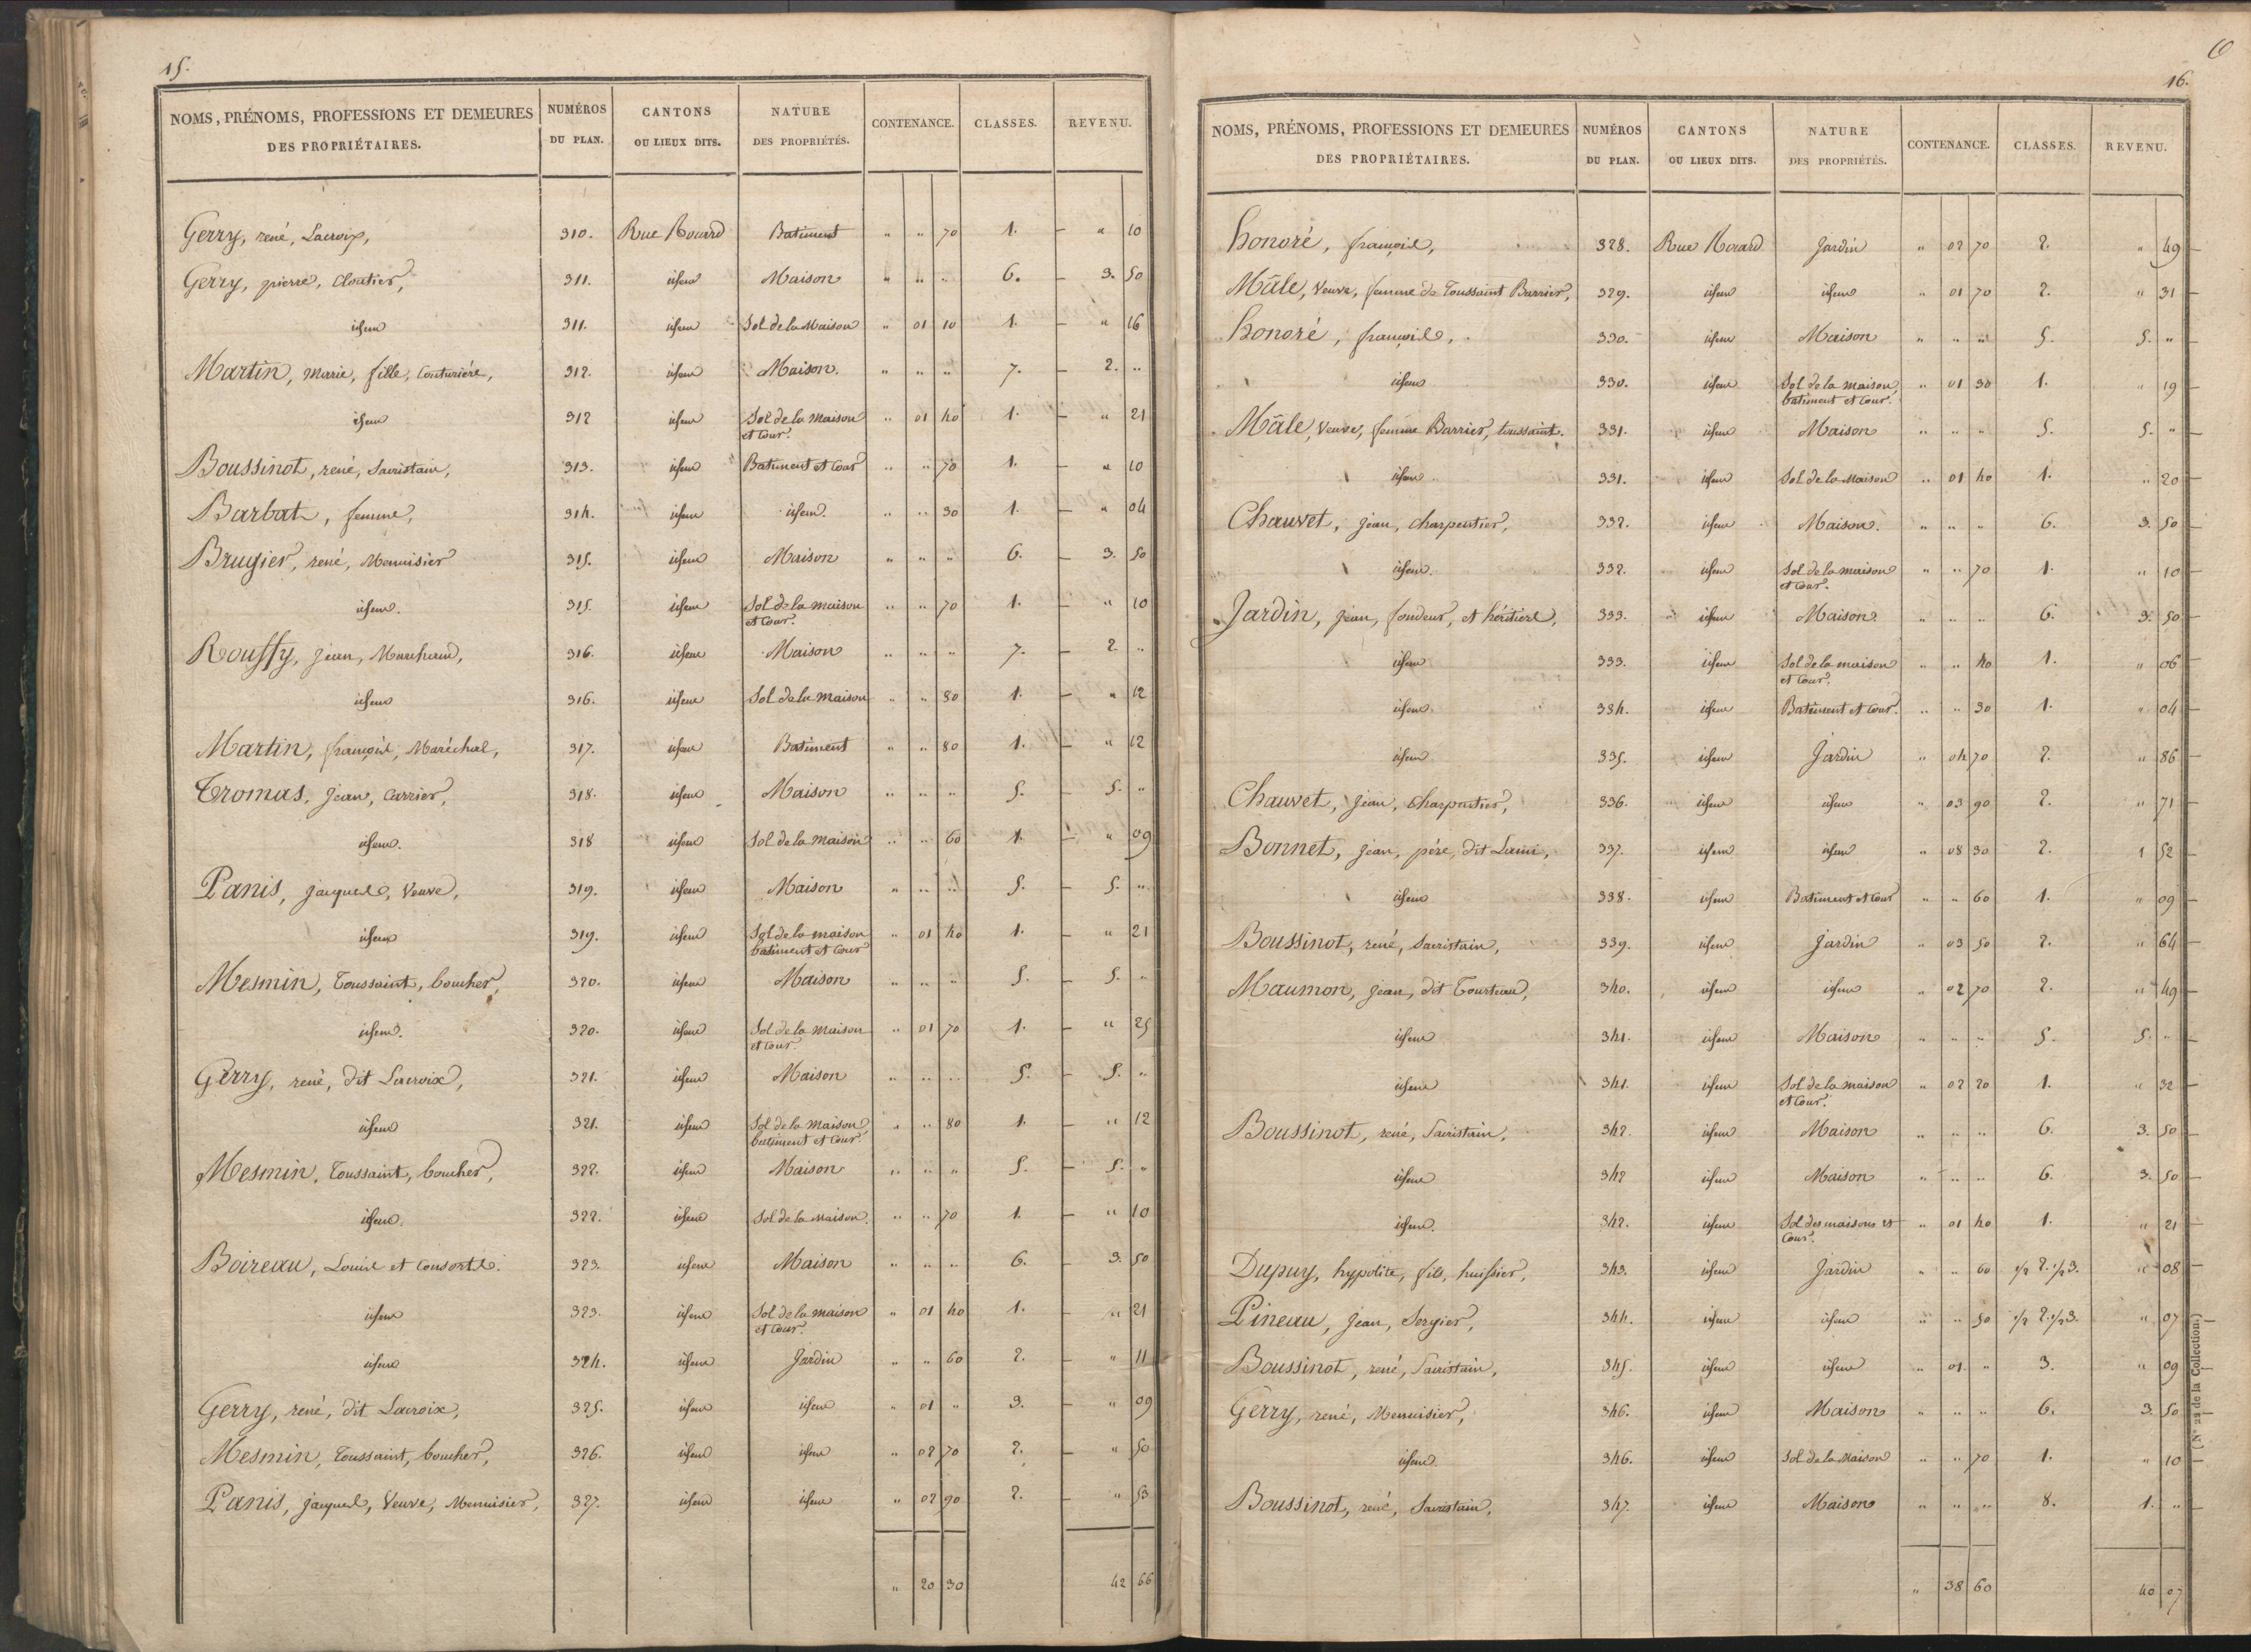 15.
NOMS, PRÉNOMS, PROFESSIONS ET DEMEURES DES PROPRIÉTAIRES. NUMÉROS DU PLAN. CANTONS OU LIEUX DITS. NATURE DES PROPRIÉTÉS. CONTENANCE. CLASSES. REVENU.
Gerry, rené, Lacroix, 310. Rue Rouard Batiment " " 70 1. " 10
Gerry, pierre, Cloutier, 311. idem Maison " " " 6. 3. 50
idem 311. idem Sol de la Maison " 01 10 1. " 16
Martin, marie, fille, Couturière, 312. idem Maison. " " " 7. 2. "
idem 312 idem Sol de la Maison et Cour. " 01 40 1. " 21
Boussinot, rené, Sacristain, 313. idem Batiment et Cour " " 70 1. " 10
Barbat, femme, 314. idem idem. " " 30 1. " 04
Brugier, rené, Menuisier 315. idem Maison " " " 6. 3. 50
idem. 315. idem Sol de la maison et Cour. " " 70 1. " 10
Rouffy, jean, Marchand, 316. idem Maison " " " 7. 2 "
idem 316. idem Sol de la Maison " " 80 1. " 12
Martin, françois, Maréchal, 317. idem Batiment " " 80 1. " 12
Tromas, Jean, Carrier, 318. idem Maison " " " 5. 5. "
idem. 318 idem Sol de la Maison " " 60 1. " 09
Panis, jacques, Veuve, 319. idem Maison " " " 5. 5. "
idem 319. idem Sol de la maison batiment et Cour " 01 40 1. " 21
Mesmin, Toussaint, boucher, 320. idem Maison " " " 5. 5. "
idem. 320. idem Sol de la Maison et Cour. " 01 70 1. " 25
Gerry, rené, dit Lacroix, 321. idem Maison " " " 5. 5. "
idem 321. idem Sol de la Maison batiment et Cour. " " 80 1. " 12
Mesmin, Toussaint, boucher, 322. idem Maison " " " 5. 5. "
idem. 322. idem Sol de la Maison. " " 70 1. " 10
Boireau, Louis et Consorts. 323. idem Maison " " " 6. 3. 50
idem 323. idem Sol de la maison et Cour. " 01 40 1. " 21
idem 324. idem Jardin " " 60 2. " 11
Gerry, rené, dit Lacroix, 325. idem idem " 01 " 3. " 09
Mesmin, Toussaint, boucher, 326. idem idem " 02 70 2. " 50
Panis, jacques, Veuve, Menuisier, 327. idem idem " 02 90 2. " 53
" 20 30 42 66
16.
NOMS, PRÉNOMS, PROFESSIONS ET DEMEURES DES PROPRIÉTAIRES. NUMÉROS DU PLAN. CANTONS OU LIEUX DITS. NATURE DES PROPRIÉTÉS. CONTENANCE. CLASSES. REVENU.
honoré, françois, 328. Rue Rouard Jardin " 02 70 2. " 49
Mâle, Veuve, femme de Toussaint Barrier, 329. idem idem " 01 70 2. " 31
honoré, françois, 330. idem Maison " " " 5. 5. "
idem 330. idem Sol de la maison, batiment et Cour. " 01 30 1. " 19
Mâle, Veuve, femme Barrier, toussaint. 331. idem Maison " " " 5. 5. "
idem 331. idem Sol de la Maison " 01 40 1. " 20
Chauvet, jean, charpentier, 332. idem Maison. " " " 6. 3. 50
idem. 332. idem Sol de la maison et Cour. " " 70 1. " 10
Jardin, jean, fondeur, et héritiers, 333. idem Maison. " " " 6. 3. 50
idem 333. idem Sol de la maison et Cour. " " 40 1. " 06
idem. 334. idem Batiment et Cour. " " 30 1. " 04
idem 335. idem Jardin " 04 70 2. " 86
Chauvet, jean, Charpentier, 336. idem idem " 03 90 2. " 71
Bonnet, jean, père, dit Lami, 337. idem idem " 08 30 2. 1 52
idem 338. idem Batiment et Cour " " 60 1. " 09
Boussinot, rené, Sacristain, 339. idem Jardin " 03 50 2. " 64
Maumon, jean, dit Tourteau, 340. idem idem " 02 70 2. " 49
idem 341. idem Maison " " " 5. 5. "
idem 341. idem Sol de la maison et Cour. " 02 20 1. " 32
Boussinot, rené, Sacristain, 342. idem Maison " " " 6. 3. 50
idem 342 idem Maison " " " 6. 3. 50
idem. 342. idem Sol des maisons et Cour. " 01 40 1. " 21
Dupuy, hypolite, fils, huissier, 343. idem Jardin " " 60 1/2 2. 1/2 3. " 08
Pineau, Jean, Sergier, 344. idem idem " " 50 1/2 2. 1/2 3. " 07
Boussinot, rené, Sacristain, 345. idem idem " 01 " 3. " 09
Gerry, rené, Menuisier, 346. idem Maison " " " 6. 3. 50
idem. 346. idem Sol de la Maison " " 70 1. " 10
Boussinot, rené, Sacristain, 347. idem Maison " " " 8. 1. "
" 38 60 40 07
(N° 22 de la Collection.)